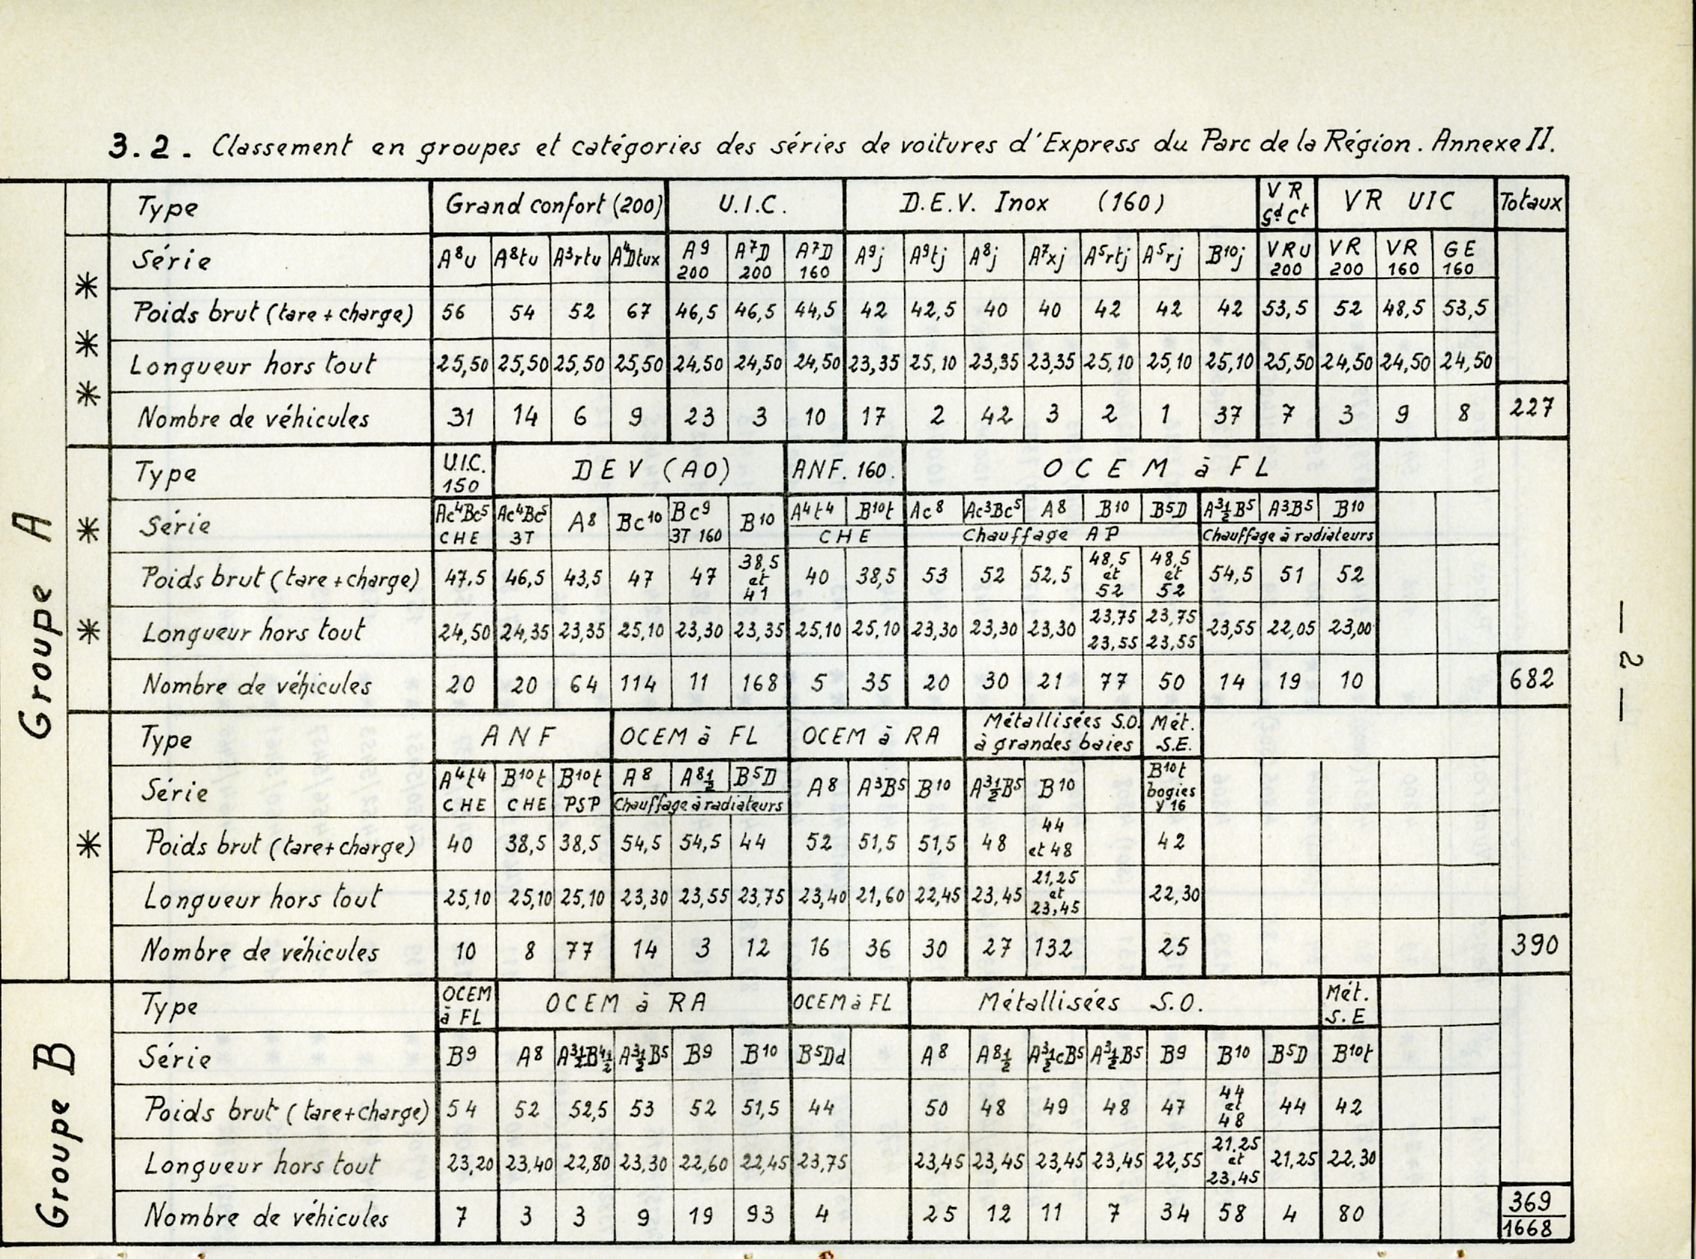 3.2. Classement en groupes et catégories des séries de voitures d'Express du Parc de la Région. Annexe II.
Type Grand confort (200) U.I.C. D.E.V. Inox (160) VR Gd Ct VR UIC Totaux
Série A8u A8tu A3rtu A4Dtux A9 200 A7D 200 A7D 160 A9j A9tj A8j A7xj A5rtj A5rj B10j VRU 200 VR 200 VR 160 GE 160
Poids brut (tare + charge) 56 54 52 67 46,5 46,5 44,5 42 42,5 40 40 42 42 42 53,5 52 48,5 53,5
Longueur hors tout 25,50 25,50 25,50 25,50 24,50 24,50 24,50 23,35 25,10 23,35 23,35 25,10 25,10 25,10 25,50 24,50 24,50 24,50
Nombre de véhicules 31 14 6 9 23 3 10 17 2 42 3 2 1 37 7 3 9 8 227
Groupe A
Type U.I.C. 150 DEV (AO) ANF. 160. OCEM à FL
Série Ac4Bc5 CHE Ac4Bc5 3T A8 Bc10 Bc9 3T 160 B10 A4t4 B10t CHE Ac8 Ac3Bc5 A8 B10 B5D Chauffage AP A3½B5 A3B5 B10 Chauffage à radiateurs
Poids brut (tare + charge) 47,5 46,5 43,5 47 47 38,5 et 41 40 38,5 53 52 52,5 48,5 et 52 48,5 et 52 54,5 51 52
Longueur hors tout 24,50 24,35 23,35 25,10 23,30 23,35 25,10 25,10 23,30 23,30 23,30 23,75 23,55 23,75 23,55 23,55 22,05 23,00
Nombre de véhicules 20 20 64 114 11 168 5 35 20 30 21 77 50 14 19 10 682
— 2 —
Type ANF OCEM à FL OCEM à RA Métallisées S.O. à grandes baies Mét. S.E.
Série A4t4 CHE B10t CHE B10t PSP A8 A8½ B5D Chauffage à radiateurs A8 A3B5 B10 A3½B5 B10 B10t bogies Y16
Poids brut (tare + charge) 40 38,5 38,5 54,5 54,5 44 52 51,5 51,5 48 44 et 48 42
Longueur hors tout 25,10 25,10 25,10 23,30 23,55 23,75 23,40 21,60 22,45 23,45 21,25 et 23,45 22,30
Nombre de véhicules 10 8 77 14 3 12 16 36 30 27 132 25 390
Groupe B
Type OCEM à FL OCEM à RA OCEM à FL Métallisées S.O. Mét. S.E
Série B9 A8 A3½B4½ A3½B5 B9 B10 B5Dd A8 A8½ A3½cB5 A3½B5 B9 B10 B5D B10t
Poids brut (tare + charge) 54 52 52,5 53 52 51,5 44 50 48 49 48 47 44 et 48 44 42
Longueur hors tout 23,20 23,40 22,80 23,30 22,60 22,45 23,75 23,45 23,45 23,45 23,45 22,55 21,25 et 23,45 21,25 22,30
Nombre de véhicules 7 3 3 9 19 93 4 25 12 11 7 34 58 4 80 369
1668